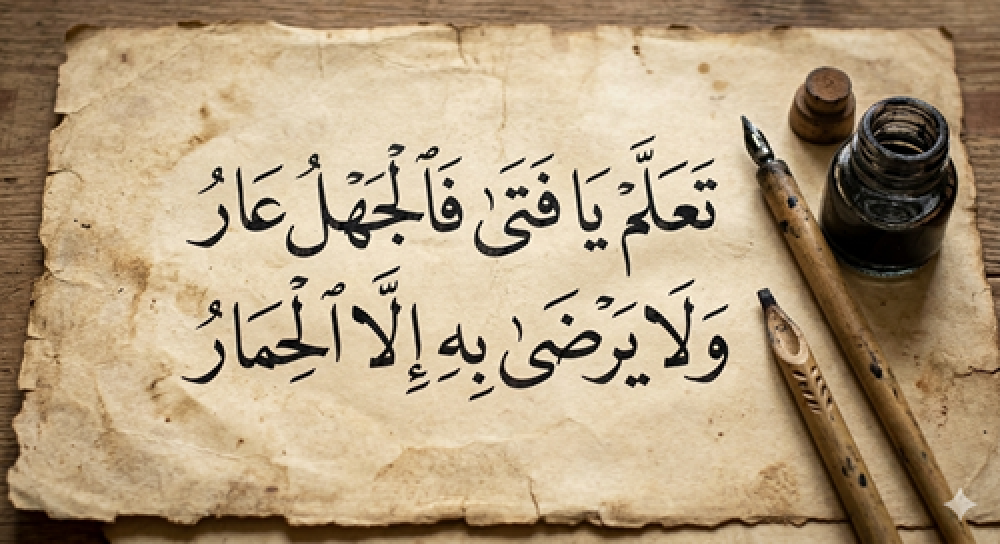 تَعَلَّمْ يَا فَتَىٰ فَٱلْجَهْلُ عَارُ
وَلَا يَرْضَىٰ بِهِ إِلَّا ٱلْحِمَارُ